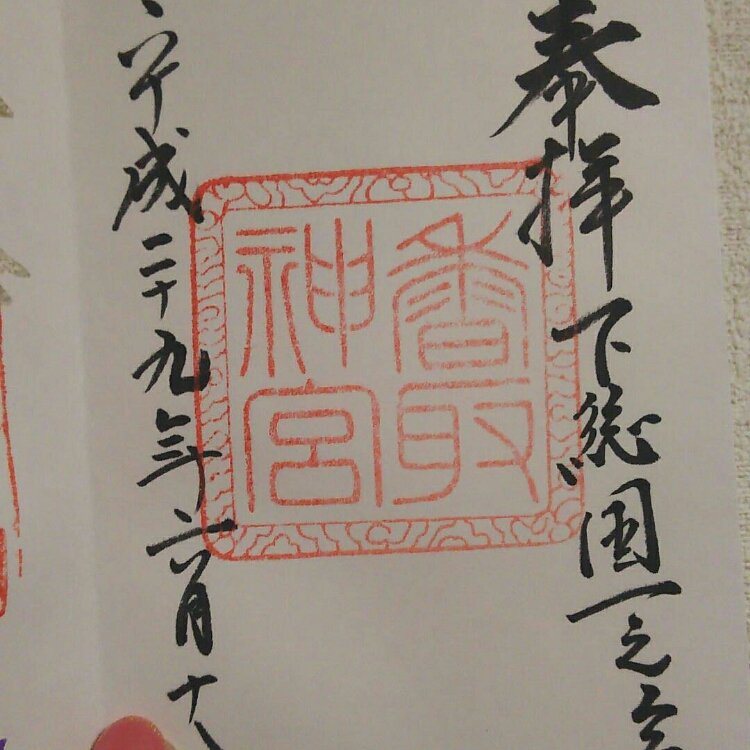 奉拝 下総国一之宮
香取
神宮
平成二十九年六月十八